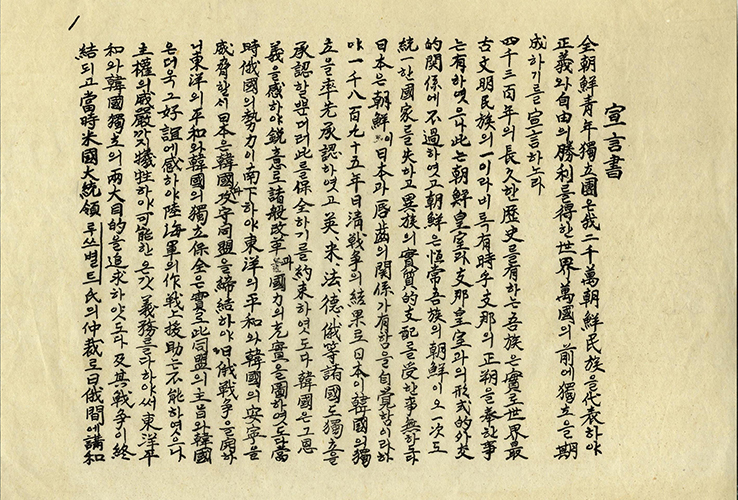 1
宣言書
全朝鮮青年獨立團은我二千萬朝鮮民族을代表하야
正義와自由의勝利를得한世界萬國의前에獨立을期
成하기를宣言하노라
四千三百年의長久한歷史를有하는吾族은實로世界最
古文明民族의一이라비록有時乎支那의正朔을奉한事
는有하엿으나此는朝鮮皇室과支那皇室과의形式的外交
的關係에不過하엿고朝鮮은恒常吾族의朝鮮이오一次도
統一한國家를失하고異族의實質的支配를受한事無하도다
日本은朝鮮이日本과唇齒의關係가有함을自覺함이라하
야一千八百九十五年日清戰爭의結果로日本이韓國의獨
立을率先承認하엿고英米法德俄等諸國도獨立을
承認할뿐더러此를保全하기를約束하엿도다韓國은그恩
義를感하야銳意로諸般改革과國力의充實을圖하엿도다當
時俄國의勢力이南下하야東洋의平和와韓國의安寧을
威脅할새日本은韓國과攻守同盟을締結하야日俄戰爭을開하
니東洋의平和와韓國의獨立保全은實로此同盟의主旨와韓國
은더욱그好誼에感하야陸海軍의作戰上援助는不能하엿으나
主權의威嚴까지犧牲하야可能한온갖義務를다하야써東洋平
和와韓國獨立의兩大目的을追求하얏도다及其戰爭이終
結되고當時米國大統領루쓰벨트氏의仲裁로日俄間에講和